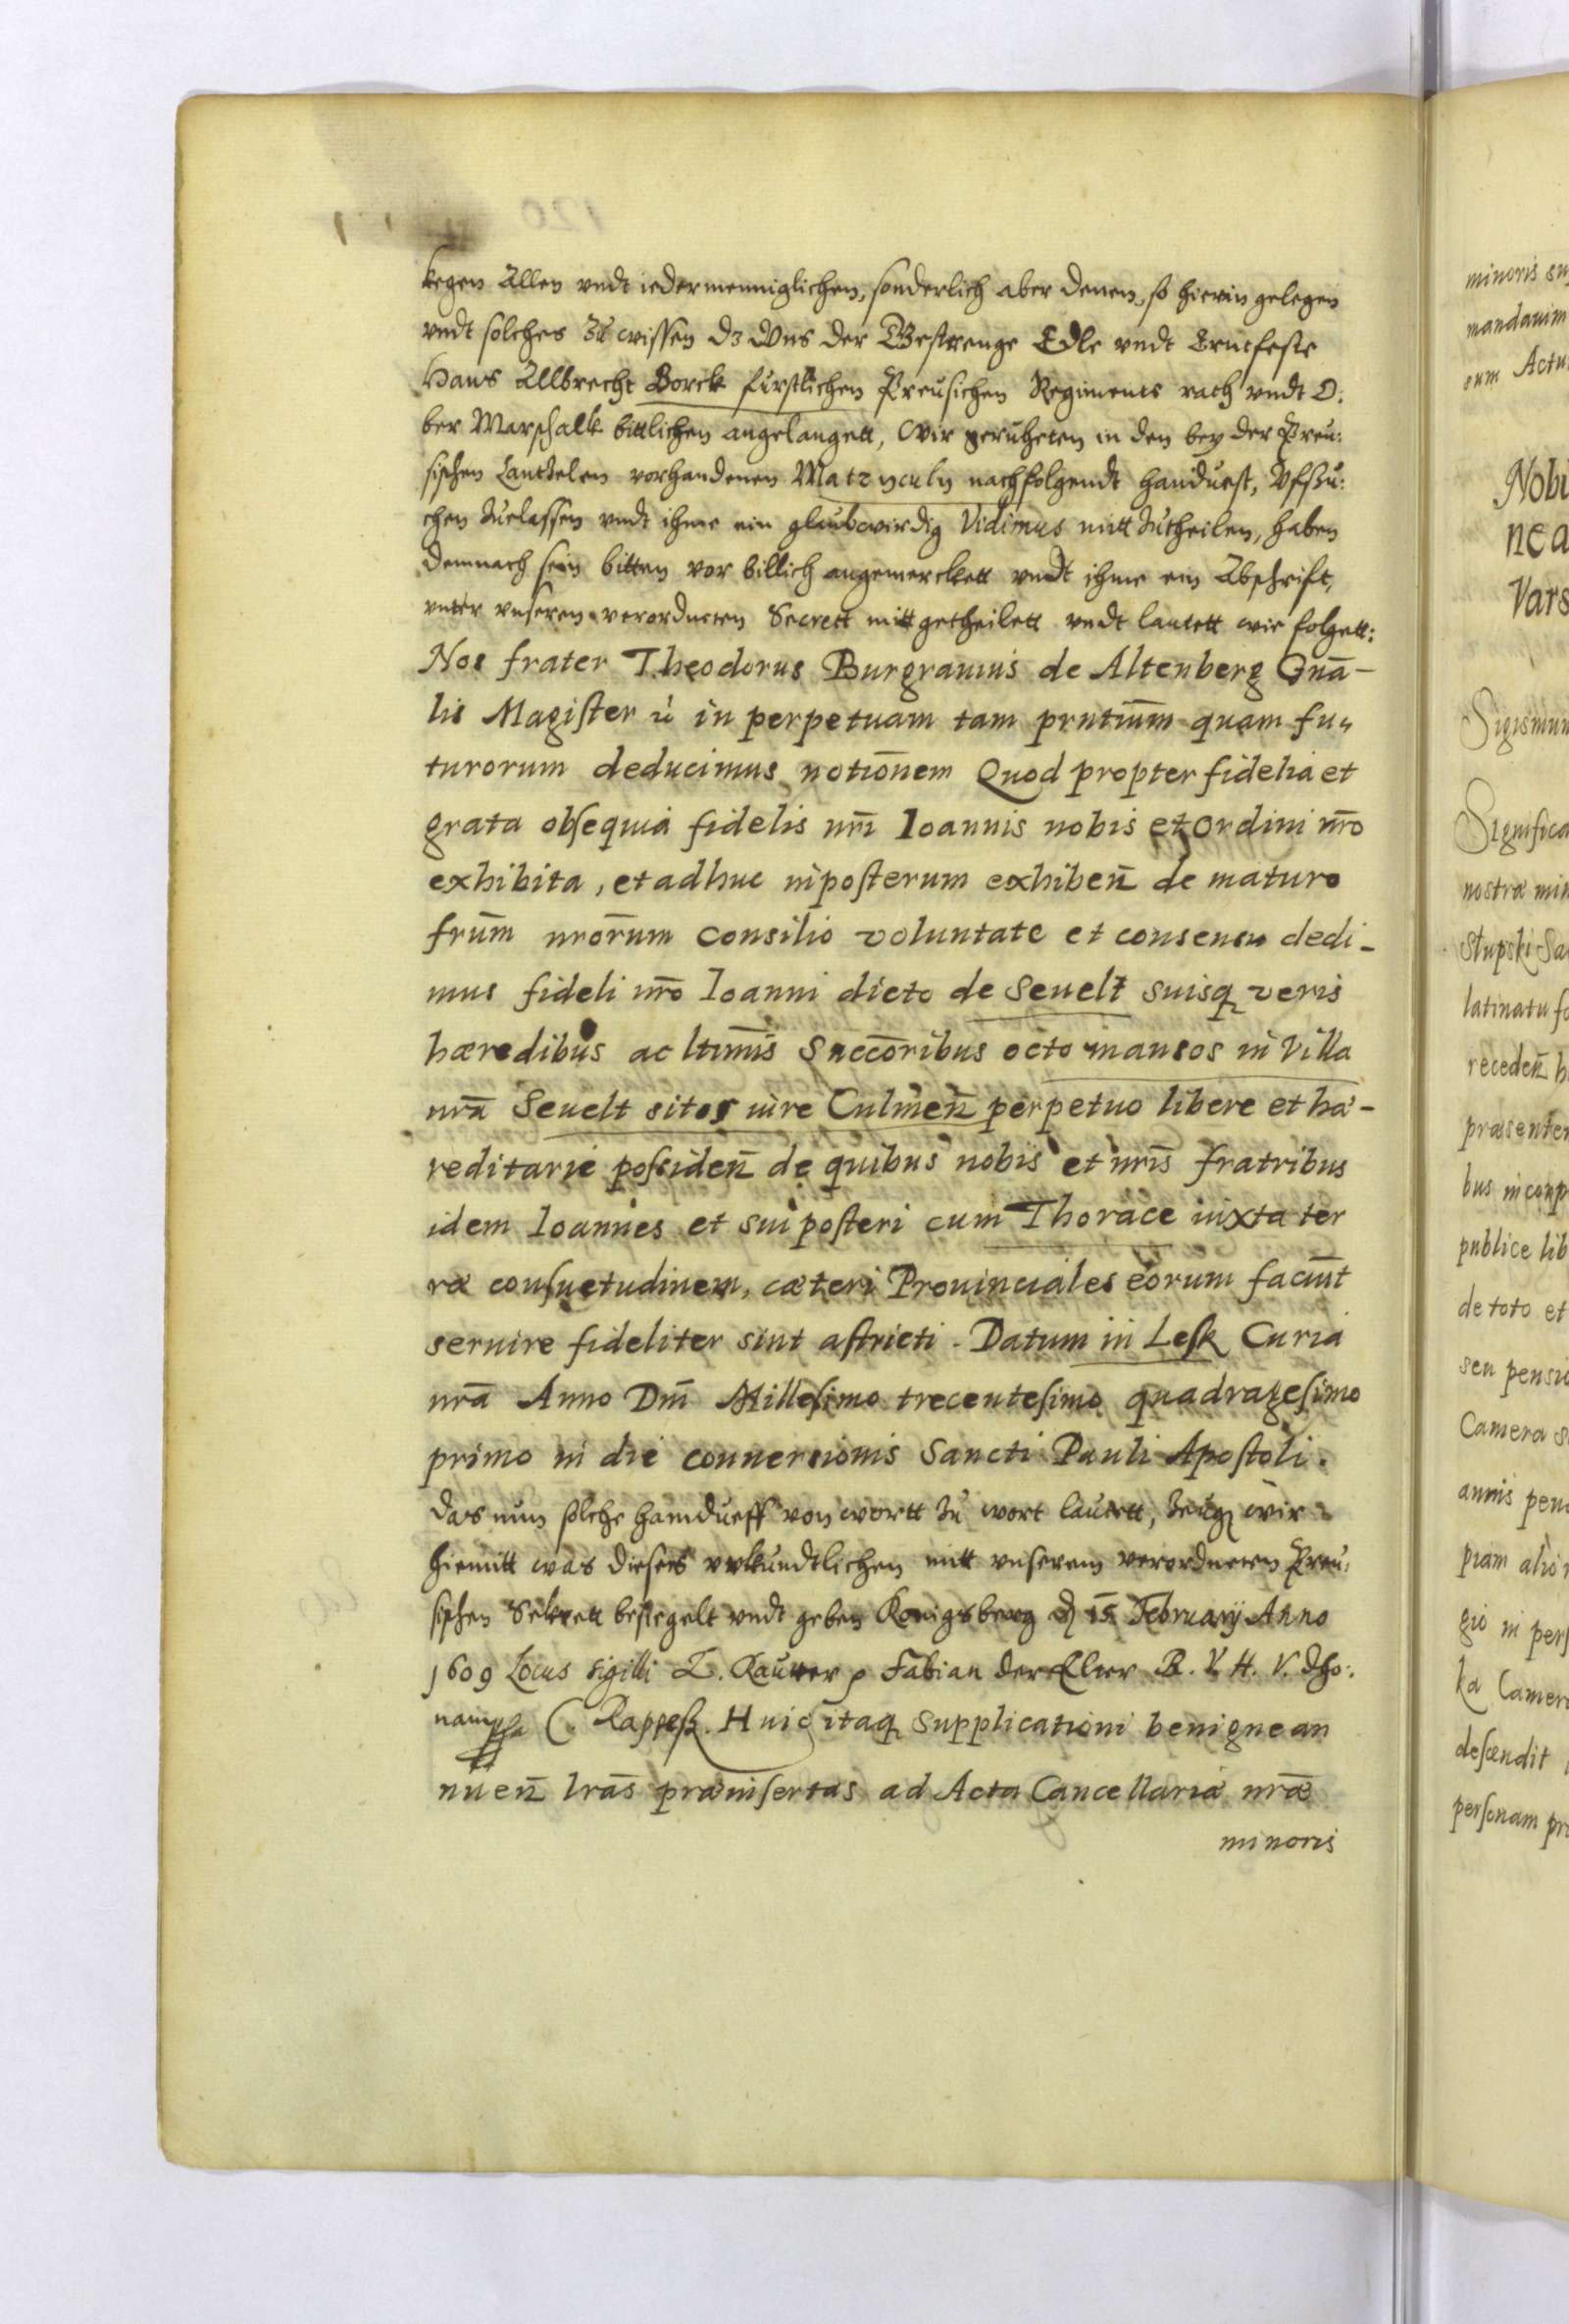 kegen Allen vndt iedermenniglichen, sonderlich aber denen, so hierin gelegen
vndt solches zu wissen dz Vns der Gestrenge Edle vndt Erntfeste
Hans Allbrecht Borck fürstlichen Preusichen Regiments rath vndt O:
ber Marschalk bittlichen angelangett, Wir geruheten in den bey der Preu:
sischen Cantzelen vorhandenen Matryculn nachfolgendt handuest, Vfsu:
chen zuelassen vndt ihme ein glaubwirdig Vidimus mitt zutheilen, haben
demnach sein bitten vor billich angemerckett vndt ihme ein Abschrift,
vnter vnseren verordneten Secrett mitt getheilett vndt lautett wie folgett:
Nos frater Theodorus Burgrauius de Altenberg Gnā-
lis Magister in perpetuam tam prntium̄ quam fu-
turorum deducimus notion̄em Quod propter fidelia et
grata obsequia fidelis nr̄i Ioannis nobis et Ordini nr̄o
exhibita, et adhuc in posterum exhiben̄ de maturo
frūm nrōrum consilio voluntate et consensu dedi-
mus fideli nr̄o Ioanni dicto de Seuelt suisq veris
hæredibus ac ltimīs Succōribus octo mansos in Villa
nrā Seuelt sitos iure Culmen̄ perpetuo libere et hæ-
reditarie possiden̄ de quibus nobis et nrīs fratribus
idem Ioannes et sui posteri cum Thorace iuxta ter
ræ consuetudinem, cæteri Prouinciales eorum faciūnt
seruire fideliter sint astricti. Datum in Lesk Curia
nrā Anno Dnī Millesimo trecentesimo quadragesimo
primo in die conuersionis Sancti Pauli Apostoli.
Das nun solche handuest von wortt zu wort lautett, zeug wir
hiemitt was dieses vrkundtlichen mitt vnserem verordneten Preu:
sischen Sekrett besiegelt vndt geben Konigsberg d 15 February Anno
1609 Locus sigilli Z. Rautter Fabian der Elter B. V. H. V. Dho:
nam C. Rappeß. Huic itaq supplicationi benigne an
nuen̄ lrās præinsertas ad Acta Cancellariæ nrǣ
minoris
120
minoris
mandauim
eum Actu
Nobi
nea
Vars
Sigismun
Significa
nostræ min
Słupski Sa
latinatu
receden̄ h
præsenter
bus
publice lib
de toto et
seu pensi
Camera
annis pen
piam alio
gio in pers
ka Camer
descendit
personam